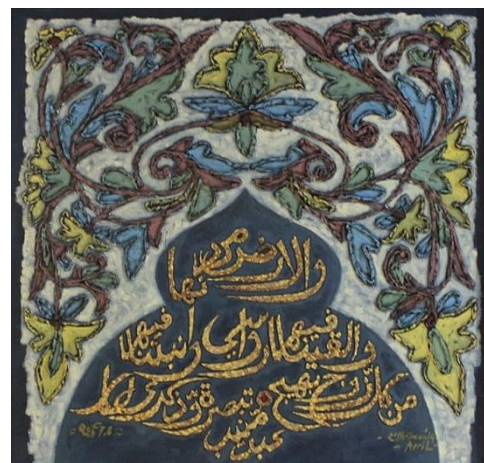 والارض مددنها
والقينا فيها رواسي وانبتنا فيها
من كل زوج بهيج تبصرة وذكرى لكل
عبد منيب